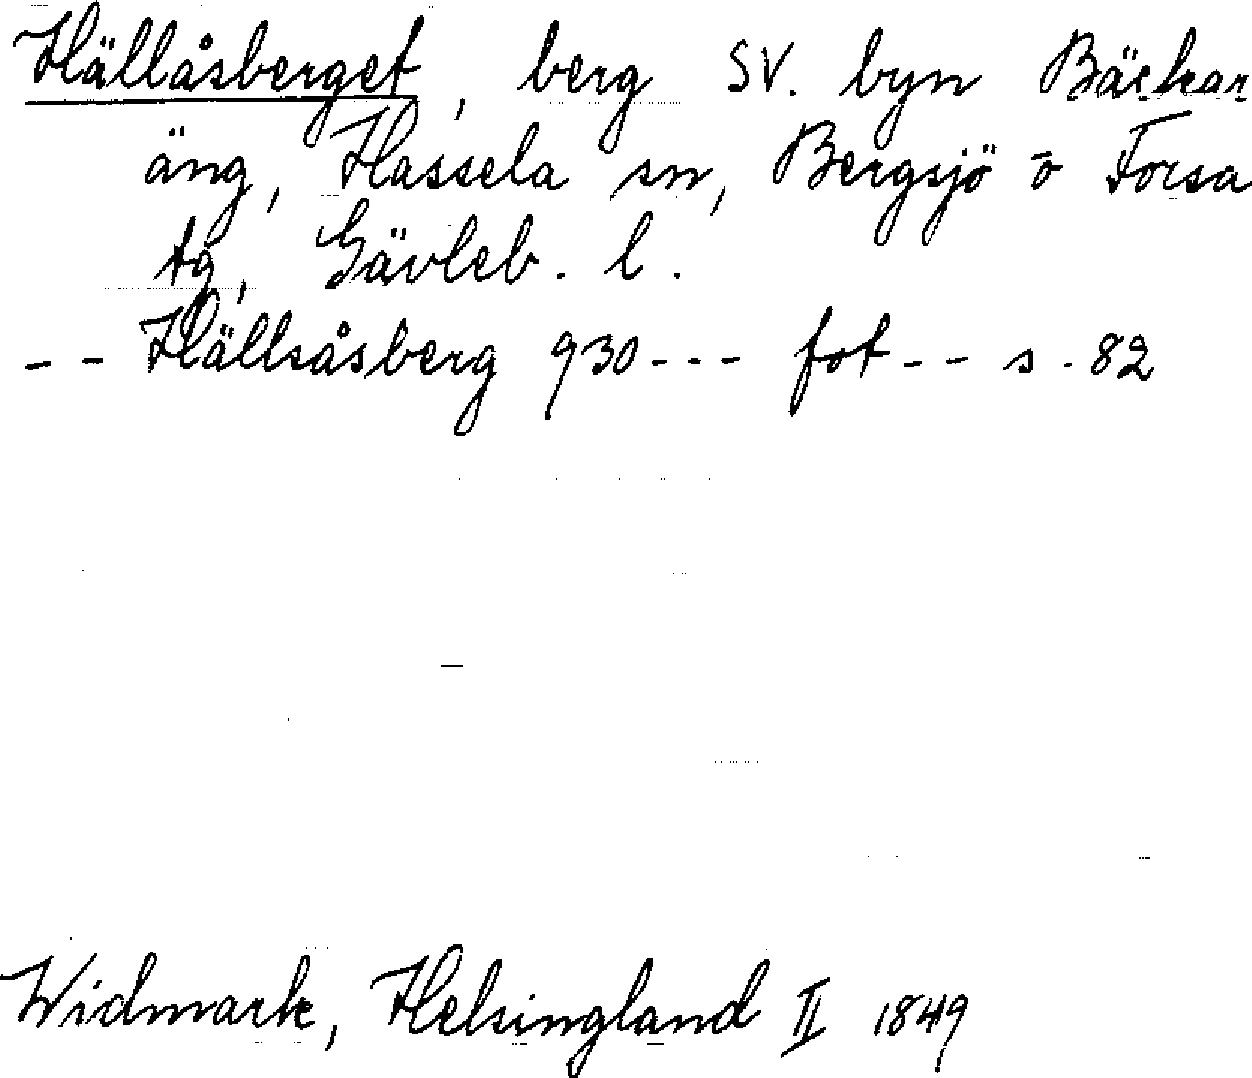 Hällåsberget, berg SV. byn Bäckar
äng, Hassela sn, Bergsjö o Forsa
tg, Gävleb. l.
-- Hällsåsberg 930--- fot -- s. 82
Widmark, Helsingland II 1849